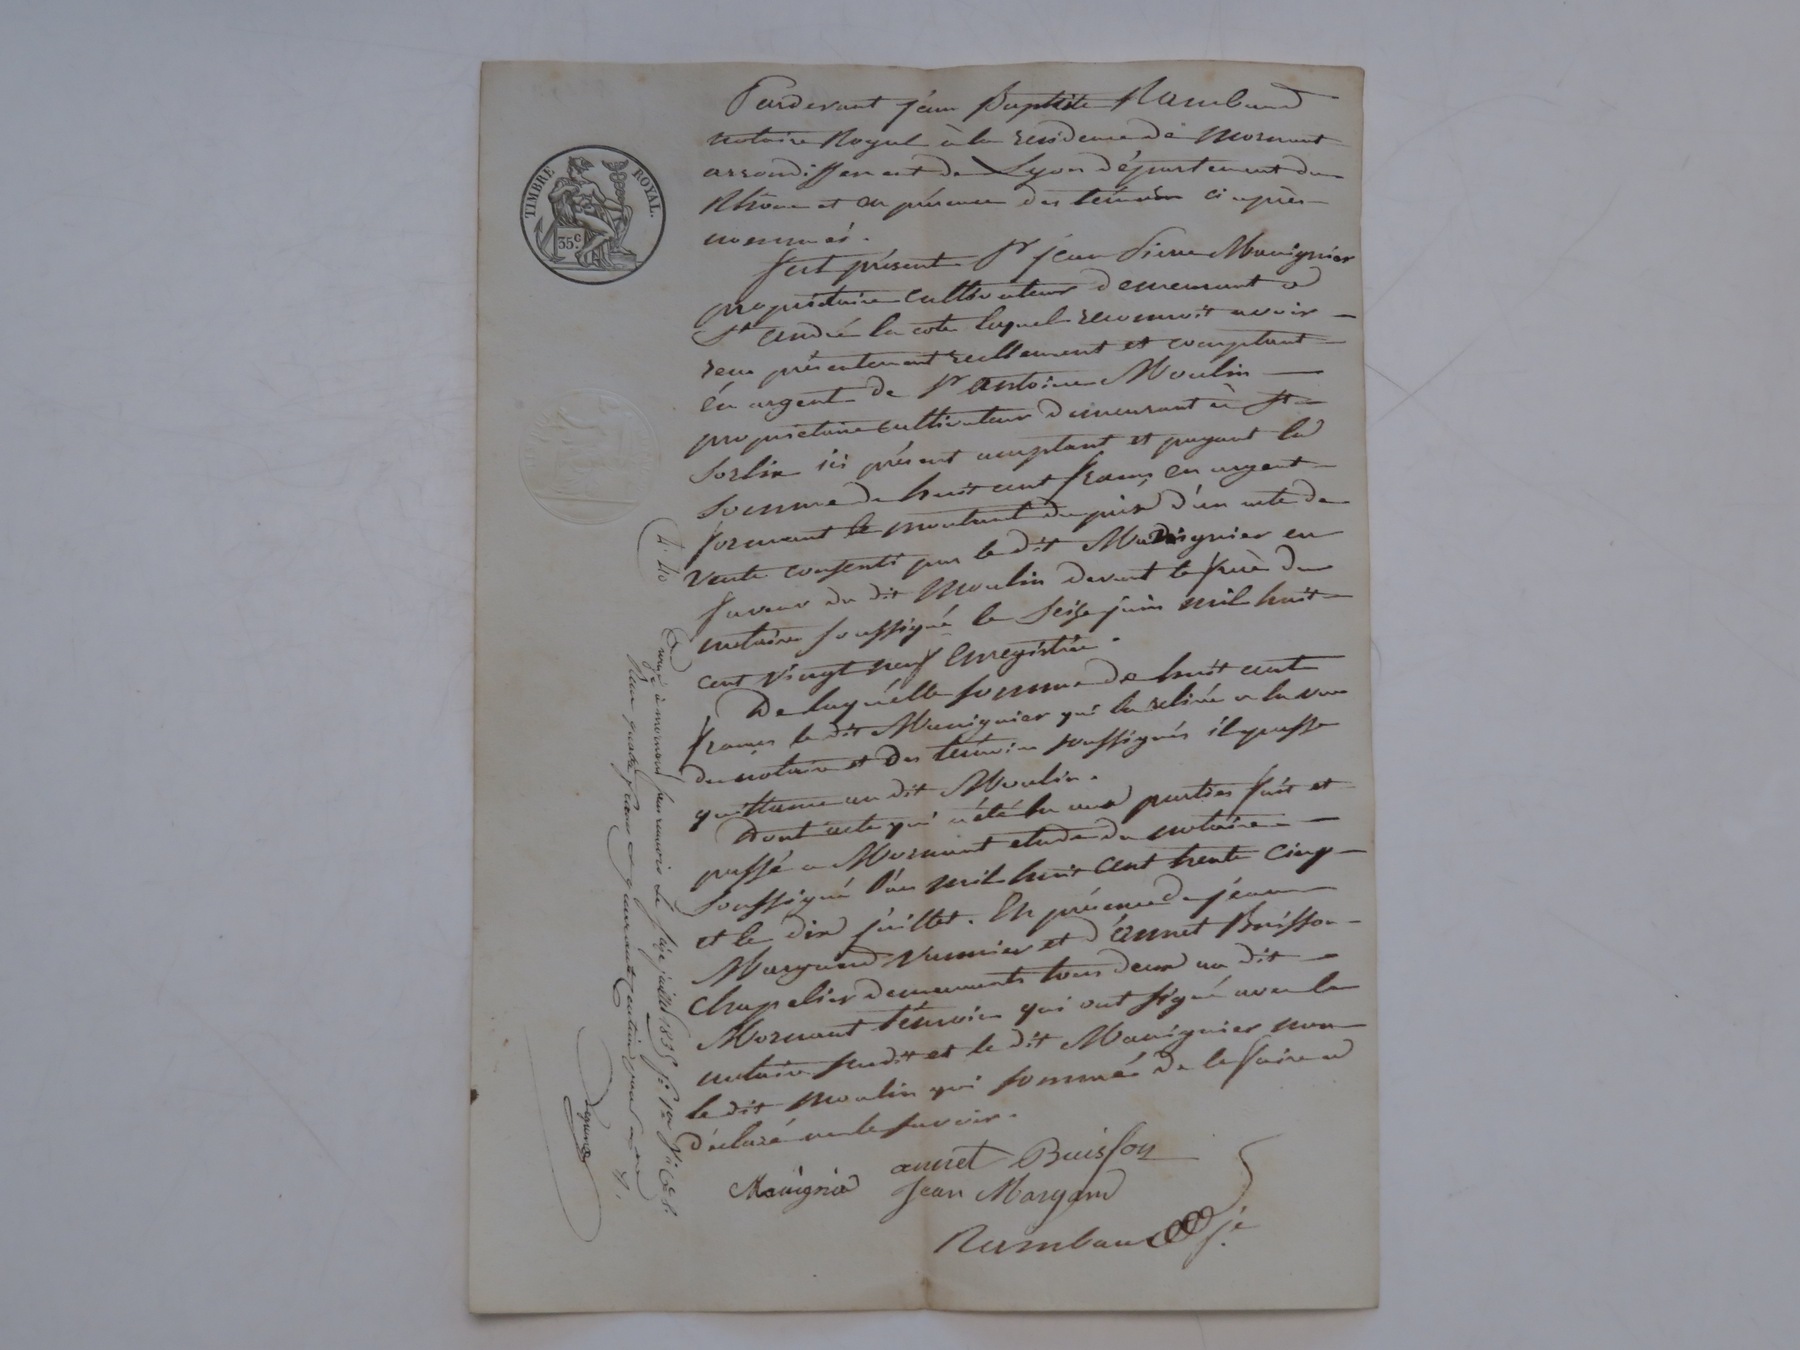 Pardevant jéan Baptiste Rambaud
notaire Royal à la residence de Mornant
arrondissement de Lyon département du
Rhône et en présence des témoins ci après
nommés.
fut présent Sr jéan Pierre Mavignier
propriétaire cultivateur demeurant a
St andré la cote lequel reconnoit avoir
recu présentement réellement et comptant
én argent de Sr antoine Moulin
propriétaire cultivateur demeurant à St
Sorlin ici présent comptant et payant la
somme de huit cent francs en argent
formant le montant du prix d'un acte de
vente consenti par le dit Mavignier en
faveur du dit Moulin devant le
notaire soussigné le Seize juin mil huit
cent vingt neuf enregistrée.
De laquélle somme de huit cent
francs le dit Mavignier qui la retirée a la vue
du notaire et des témoins soussignés il passe
quittance au dit Moulin.
Dont acte qui a été lu aux parties fait et
passé a Mornant etude du notaire
soussigné l'an mil huit cent trente cinq
et le dix juillet. En présence de jéan
Margand et d'annet Buisson
chapelier demeurants tous deux au dit
Mornant témoins qui ont signé avec le
notaire susdit et le dit Mavignier non
le dit Moulin qui sommé de le faire a
déclaré ne le savoir.
Mavignié annet Buisson
Jean Margand
Rambaud
TIMBRE ROYAL.
35c.
4. 40
à mornant le seize juillet 1835
quatre francs quarante centimes